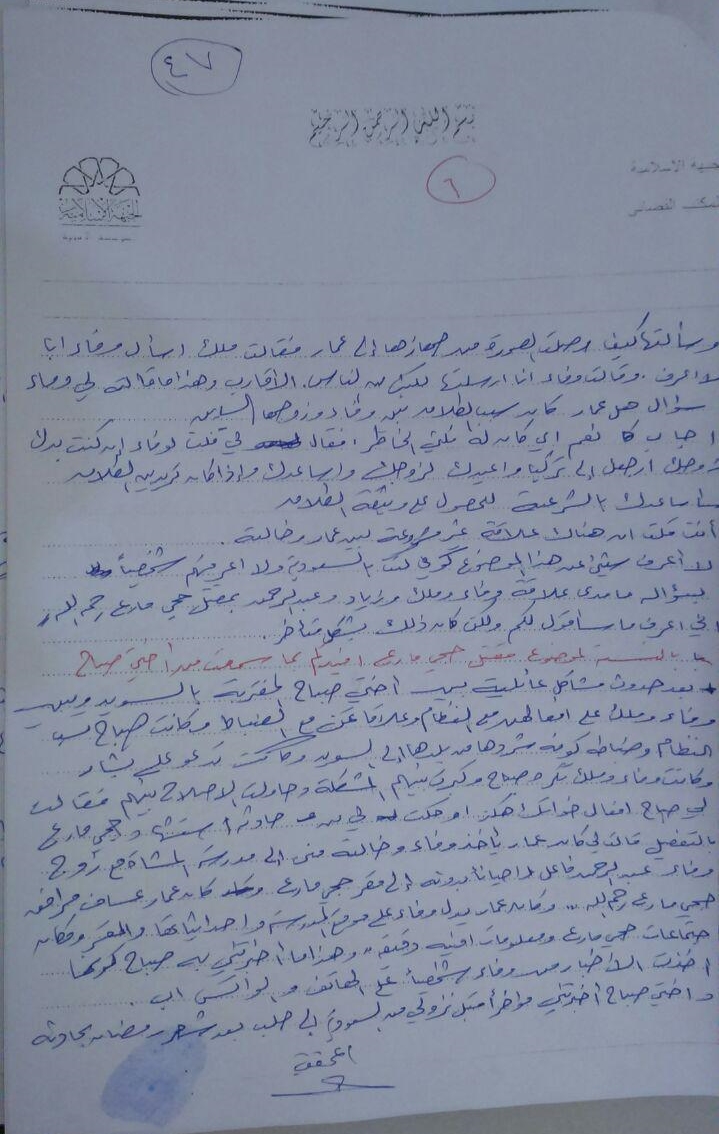 ٤٧
بسم الله الرحمن الرحيم
٦
الجبهة الإسلامية
وسألتها كيف وصلت الصورة من جهازها إلى عمار فقالت ملك اسأل وفاء انا
لا اعرف. وقالت وفاء انا ارسلتها لكثير من الناس. الأقارب وهذا ما قالته لي وفاء
سؤال هل عمار كان سبب الطلاق بين وفاء وزوجها السابق
نعم اي كان له الخاطر، فقال لي قلت لوفاء ان كنت بدك
زوجك ارحل إلى تركيا واعيدك لزوجك واساعدك وإذا كان تريدين الطلاق
ساساعدك بالشرعية للحصول على وثيقة الطلاق
أنت قلت ان هناك علاقة غير مشروعة بين عمار وخالته.
لا اعرف شيئا عن هذا الموضوع كوني كنت بالسعودية ولا اعرفهم شخصياً
سؤال ما مدى علاقة وفاء وملك وزياد وعبدالرحمن بمقتل حجي مارع رحمه الله
اني اعرف ما سأقول لكم ولكن كان ذلك بشكل متأخر.
بالنسبة لموضوع مقتل حجي مارع افيدكم بما سمعت من أختي صباح
بعد حدوث مشاكل عائلية بين اختي صباح المغتربة بالسويد وبين
وفاء وملك على افعالهن مع النظام وعلاقاتهن مع الضباط وكانت صباح تسب
النظام وضباطه كونه شردها من بلدها إلى السويد وكانت تدعو على بشار
وكانت وفاء وملك تكره صباح وكبرت بينهم المشكلة وحاولت الاصلاح بينهم فقالت
لي صباح افعال خواتك احكر او حكت لي عن حادثة استشهاد حجي مارع
بالتفصيل قالت لي كان عمار يأخذ وفاء وخالته منى إلى مدرسة المشاة مع زوج
وفاء عبدالرحمن فاعل احيانا بدونه إلى مقر حجي مارع وكان عمار عساف مرافق
حجي مارع رحمه الله،، وكان عمار يدل وفاء على موقع المدرسة واحداثياتها والمقر ومكان
اجتماعات حجي مارع ومعلومات امنية دقيقة،، وهذا ما اخبرتني به صباح كونها
اخذت الأخبار من وفاء شخصياً على الهاتف والواتس اب.
واختي صباح أخبرتني مؤخراً قبل نزولي من السعودية إلى حلب بعد شهر رمضان بحادثة
المحقق